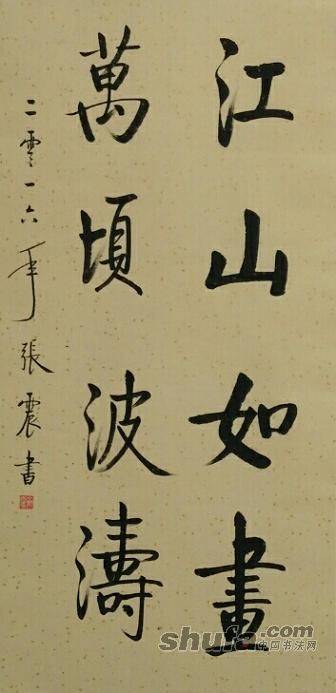 江山如畫
萬頃波濤
二零一六年張震書
shufa.com
中国书法网